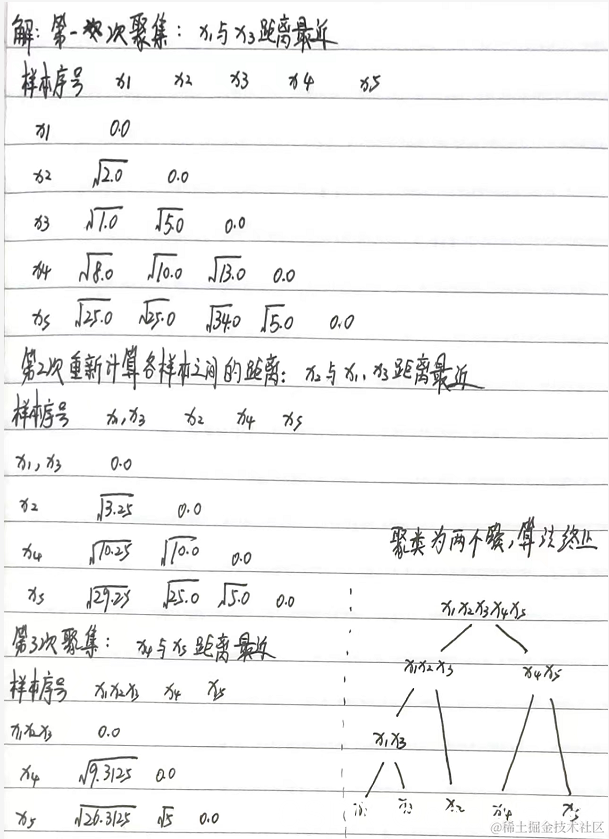 解：第一次次聚集：x1与x3距离最近
样本序号 x1 x2 x3 x4 x5
x1 0.0
x2 √2.0 0.0
x3 √1.0 √5.0 0.0
x4 √8.0 √10.0 √13.0 0.0
x5 √25.0 √25.0 √34.0 √5.0 0.0
第2次重新计算各样本之间的距离：x2与x1,x3距离最近
样本序号 x1,x3 x2 x4 x5
x1,x3 0.0
x2 √3.25 0.0
x4 √10.25 √10.0 0.0
x5 √29.25 √25.0 √5.0 0.0
第3次聚集：x4与x5距离最近
样本序号 x1x2x3 x4 x5
x1x2x3 0.0
x4 √9.3125 0.0
x5 √26.3125 √5 0.0
聚类为两个簇，算法终止
x1x2x3x4x5
x1x2x3 x4x5
x1x3
x1 x3 x2 x4 x5
@稀土掘金技术社区